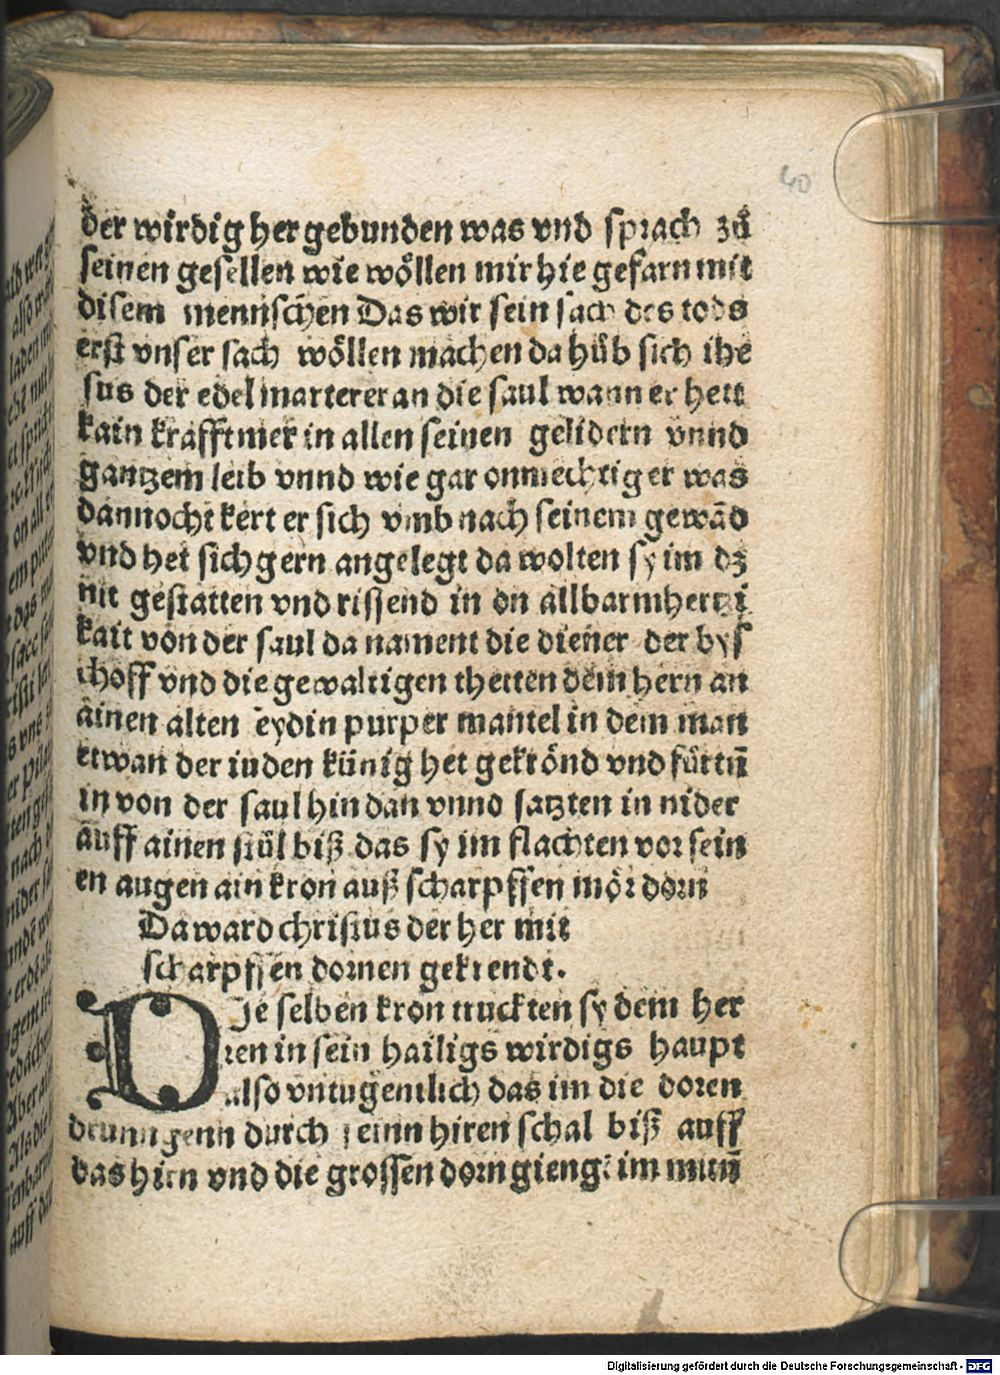 40
der wirdig her gebunden was vnd sprach zů
seinen gesellen wie wöllen mir hie gefarn mit
disem mennschen Das wir sein sach des tods
erst vnser sach wöllen machen da hůb sich ihe
sus der edel marterer an die saul wann er hett
kain krafft mer in allen seinen gelidern vnnd
gantzem leib vnnd wie gar onmechtig er was
dannocht kert er sich vmb nach seinem gewãd
vnd het sich gern angelegt da wolten sy im dz
nit gestatten vnd rissend in on allbarmhertzi
kait von der saul da nament die diener der bys
choff vnd die gewaltigen thetten dem hern an
ainen alten seydin purper mantel in dem man
etwan der iuden künig het gekrönd vnd fůrtñ
in von der saul hin dan vnnd satzten in nider
auff ainen stůl biß das sy im flachten vor sein
en augen ain kron auß scharpffen mör dorn
Da ward christus der her mit
scharpffen dornen gekrendt.
DJe selben kron truckten sy dem her
ren in sein hailigs wirdigs haupt
also vntugentlich das im die doren
drunngenn durch seinn hiren schal biß auff
das hirn vnd die grossen dorn giengẽ im mittñ
Digitalisierung gefördert durch die Deutsche Forschungsgemeinschaft - DFG